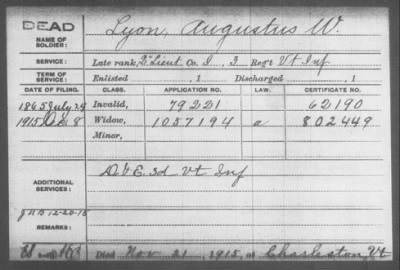 DEAD
NAME OF SOLDIER: Lyon, Augustus W.
SERVICE: Late rank, 2" Lieut Co. I, 3 Reg't Vt Inf
TERM OF SERVICE: Enlisted , 1 Discharged , 1
DATE OF FILING. CLASS. APPLICATION NO. LAW. CERTIFICATE NO.
1865 July 24 Invalid, 79221 62190
1915 Dec 8 Widow, 1057194 a 802449
Minor,
ADDITIONAL SERVICES: D & E. 3d Vt Inf
12-20-15
REMARKS:
Died Nov 21, 1915, at Charleston, Vt